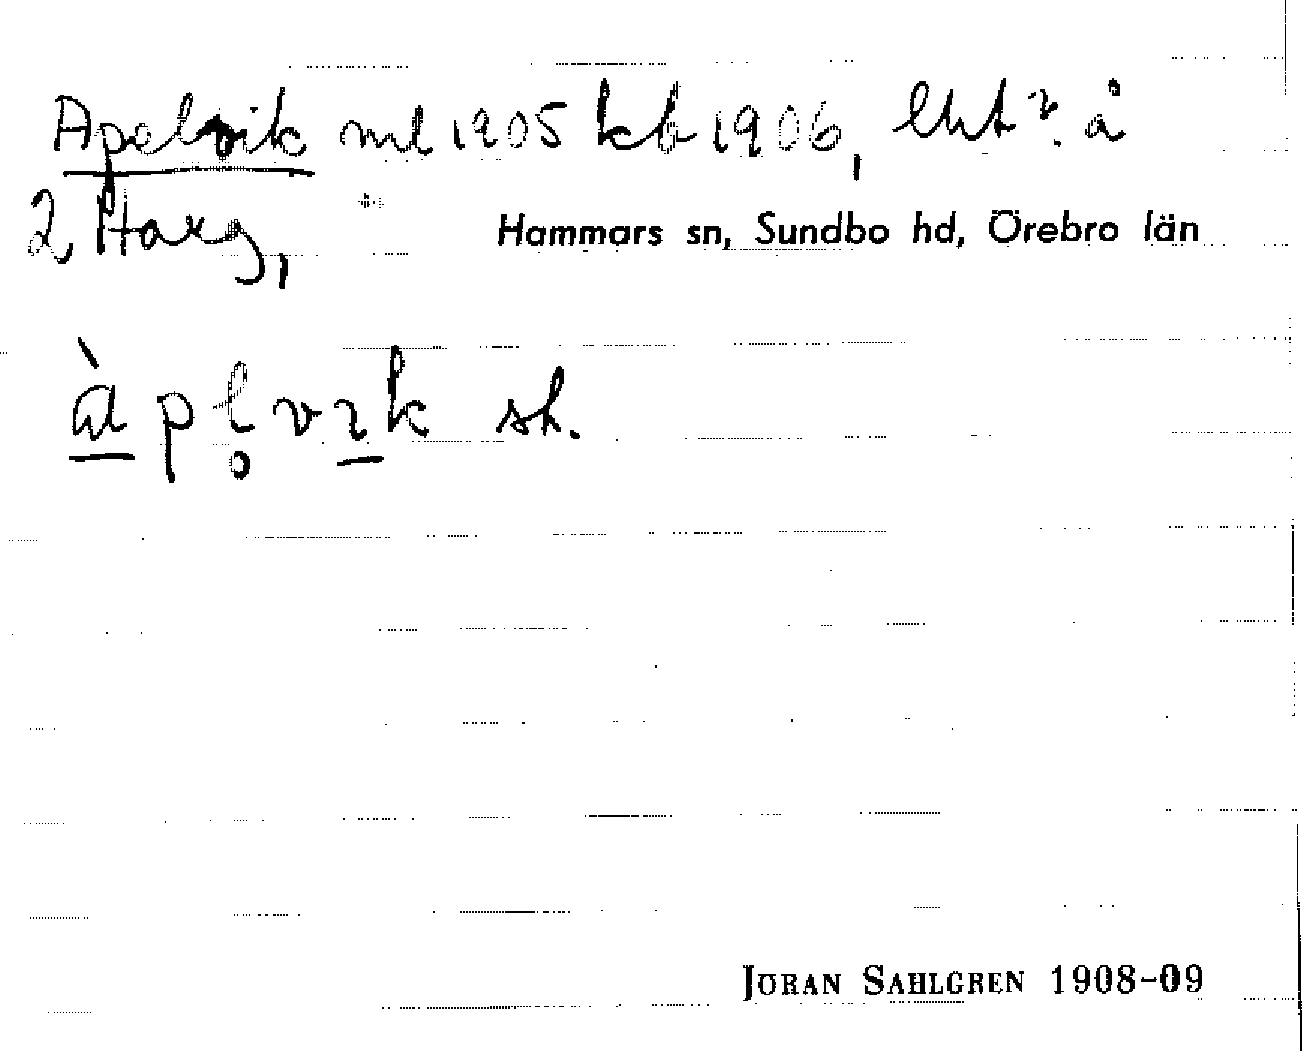 Apelvik ml 1905 kb 1906, lht å
2 Harg,
Hammars sn, Sundbo hd, Örebro län
àpl̥vɪk sk.
JÖRAN SAHLGREN 1908-09